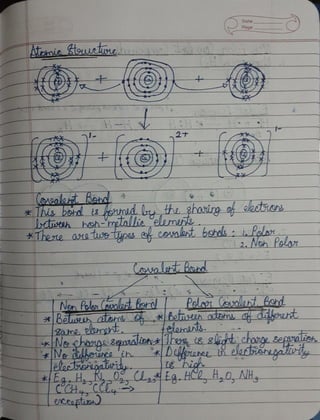 Date
Page
Atomic Structure
+ +
1- 2+ 1-
+ +
Covalent Bond
* This bond is formed by the sharing of electrons
between non-metallic elements
* There are two types of covalent bonds : 1. Polar
2. Non Polar
Covalent Bond
Non Polar Covalent Bond
* Between atoms of
same element.
* No charge separation
* No difference in
electronegativity.
* Eg. H2, N2, O2, Cl2,
CH4, CCl4 →
exception)
Polar Covalent Bond
* Between atoms of different
elements.
* There is slight charge separation
* Difference in electronegativity
is high
* Eg. HCl, H2O, NH3